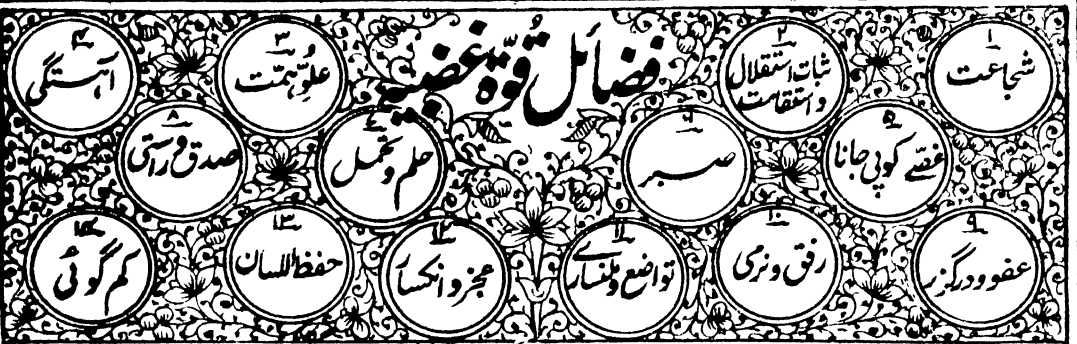 فضائل قوّۃ غضبیہ
۱ شجاعت
۲ ثبات استقلال
و استقامت
۳ علوِّ ہمّت
۴ آہستگی
۵ غصّے کو پی جانا
۶ صبر
۷ حلم و تحمل
۸ صدق و راستی
۹ عفو و درگزر
۱۰ رفق و نرمی
۱۱ تواضع و ملنساری
۱۲ عجز و انکسار
۱۳ حفظ اللسان
۱۴ کم گوئی